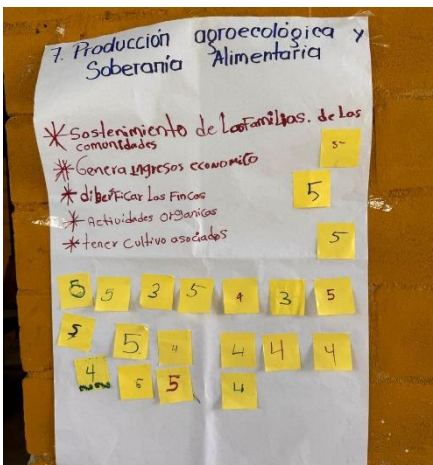 7. Producción agroecológica y
Soberanía Alimentaria
* Sostenimiento de Las Familias. de Los
comunidades
* Genera ingresos economico
* diberficar Los Fincas
* Actividades organicas
* tener Cultivo asociados
5
5
5
5 5 3 5 4 3 5
5 5 4 4 4 4
4 6 5 4